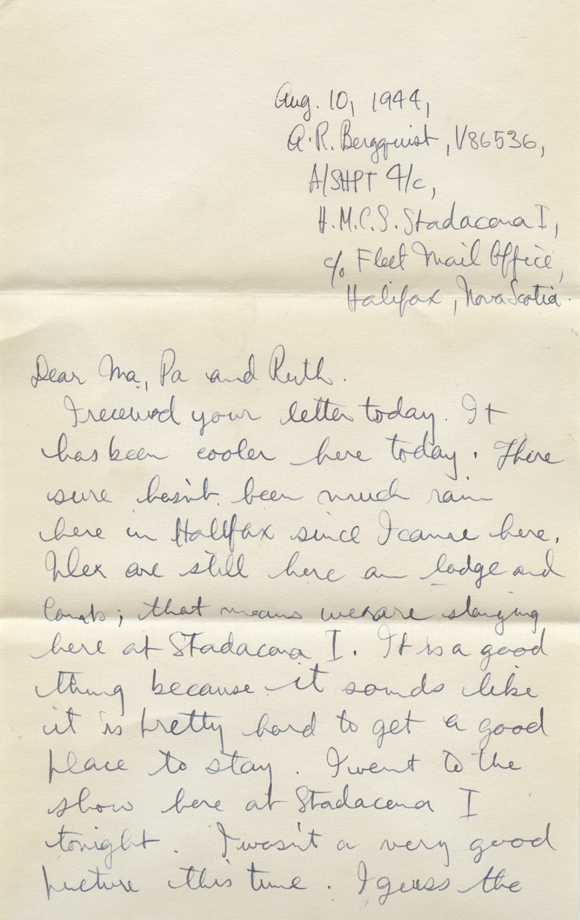 Aug. 10, 1944,
A.R. Bergquist, V86536,
A/SHPT 4/c,
H.M.C.S. Stadacona I,
c/o Fleet Mail Office,
Halifax, Nova Scotia.
Dear Ma, Pa and Ruth.
I received your letter today. It
has been cooler here today. There
sure hasn't been much rain
here in Halifax since I came here.
are still here on lodge and
; that means we are staying
here at Stadacona I. It is a good
thing because it sounds like
it is pretty hard to get a good
place to stay. I went to the
show here at Stadacona I
tonight. I wasn't a very good
picture this time. I guess the